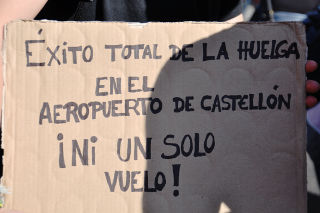 ÉXITO TOTAL DE LA HUELGA
EN EL
AEROPUERTO DE CASTELLÓN
¡Ni UN SOLO
VUELO!